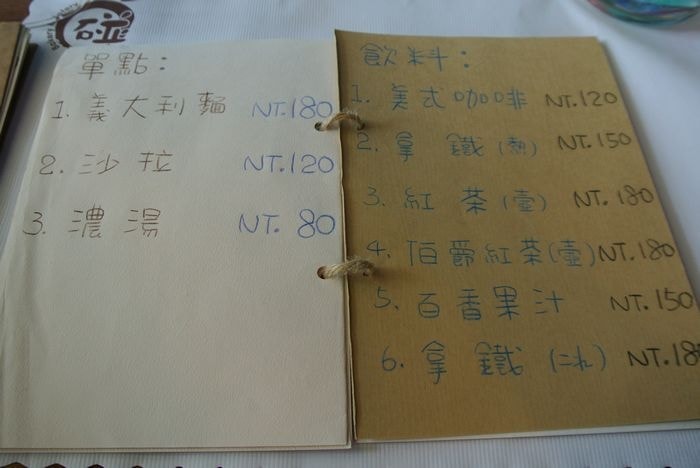 碰
單點：
1. 義大利麵 NT.180
2. 沙拉 NT.120
3. 濃湯 NT. 80
飲料：
1. 美式咖啡 NT.120
2. 拿鐵(熱) NT.150
3. 紅茶(壺) NT.180
4. 伯爵紅茶(壺) NT.180
5. 百香果汁 NT.150
6. 拿鐵 NT.18